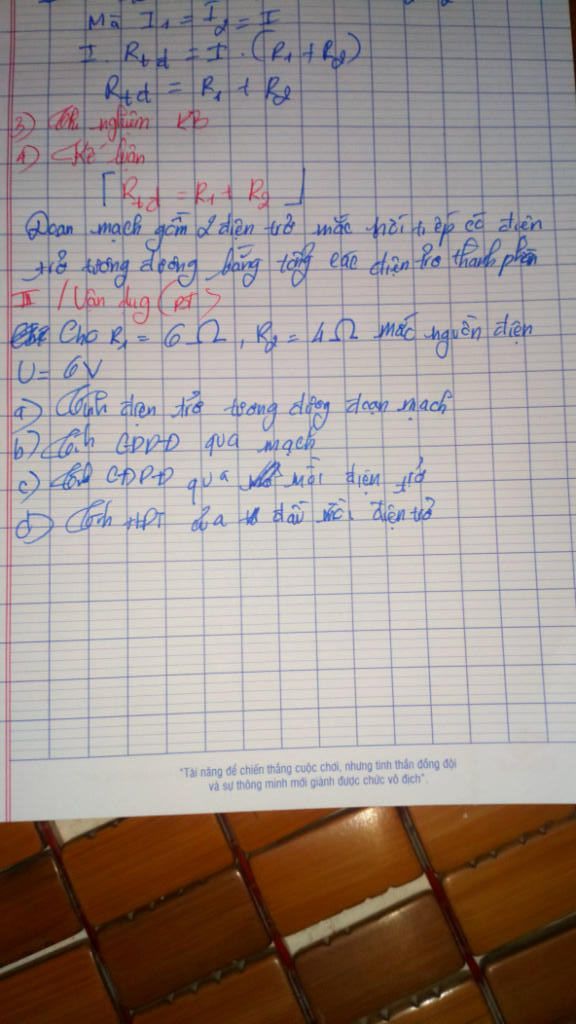 Mà I₁ = I₂ = I
I. Rtđ = I. (R₁ + R₂)
Rtđ = R₁ + R₂
3) Thí nghiệm KB
4) Kết luận
Rtđ = R₁ + R₂
Đoạn mạch gồm 2 điện trở mắc nối tiếp có điện
trở tương đương bằng tổng các điện trở thành phần
III / Vận dụg (BT)
Cho R₁ = 6Ω, R₂ = 4Ω mắc nguồn điện
U = 6V
a) Tính điện trở tương đương đoạn mạch
b) Tính CĐDĐ qua mạch
c) Tính CĐDĐ qua mỗi điện trở
d) Tính HĐT 2 đầu mỗi điện trở
"Tài năng để chiến thắng cuộc chơi, nhưng tinh thần đồng đội
và sự thông minh mới giành được chức vô địch".